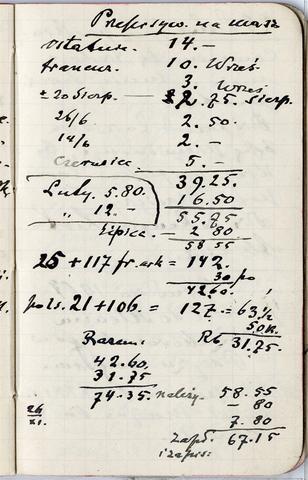 Przepisyw. na masz
ostatnie. 14. –
francuz. 10. Wrześ
3. Wrześ
± 20 Sierp. 2.75. Sierp.
26/6 2.50.
14/6 2. –
Czerwice 5. –
39.25.
Luty. 5.80. 16.50
" 12. – 55.75
Lipiec. – 2 80
58 55
25 + 117 fr. ark = 142.
30 po
4260.
pols. 21 + 106. = 127. = 63 1/2
50 k.
Razem: Rb. 31.75.
42.60.
31.75
74.35. należy. 58.55
– 80
7.80
zapł. 67.15
i zapis: